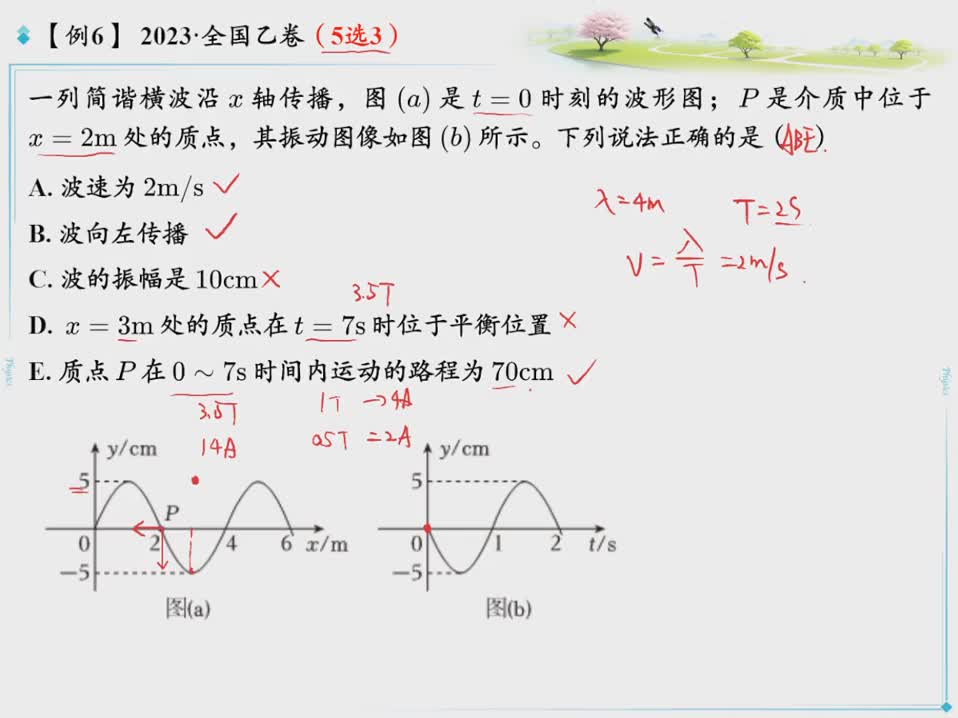 【例6】 2023·全国乙卷（5选3）
一列简谐横波沿 x 轴传播，图 (a) 是 t = 0 时刻的波形图；P 是介质中位于
x = 2m 处的质点，其振动图像如图 (b) 所示。下列说法正确的是（ABE）
A. 波速为 2m/s ✓
λ=4m T=2S
B. 波向左传播 ✓
V = λ/T = 2m/s.
C. 波的振幅是 10cm ×
3.5T
D. x = 3m 处的质点在 t = 7s 时位于平衡位置 ×
E. 质点 P 在 0 ~ 7s 时间内运动的路程为 70cm ✓
3.5T 1T →4A
14A 0.5T =2A
y/cm y/cm
5 5
P
0 2 4 6 x/m 0 1 2 t/s
−5 −5
图(a) 图(b)
Physics
Physics